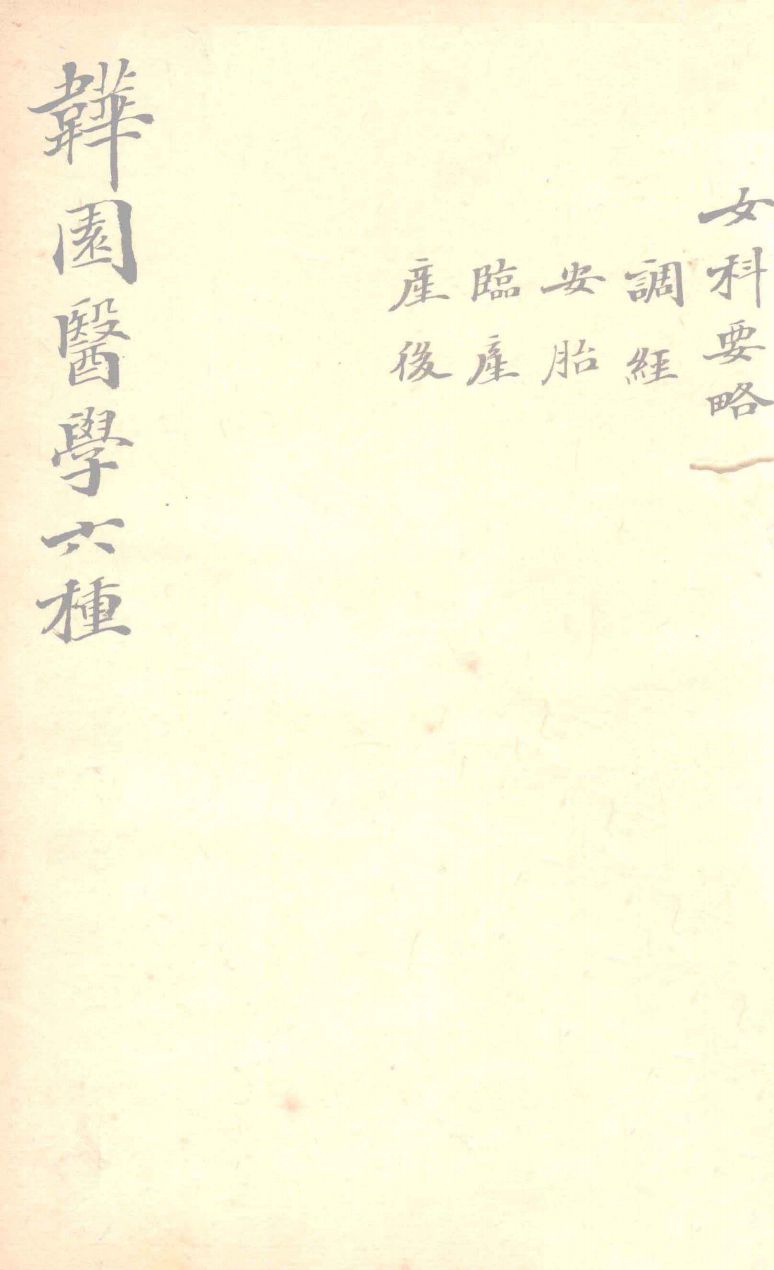 女科要略
調經
安胎
臨產
產後
韡園醫學六種